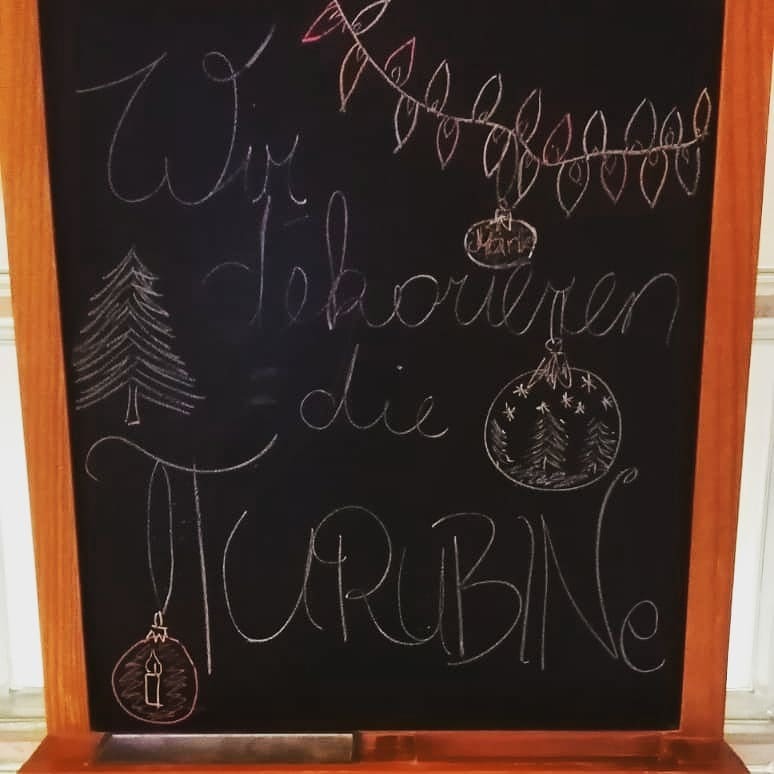 Wir
dekorieren
die
TURUBINe